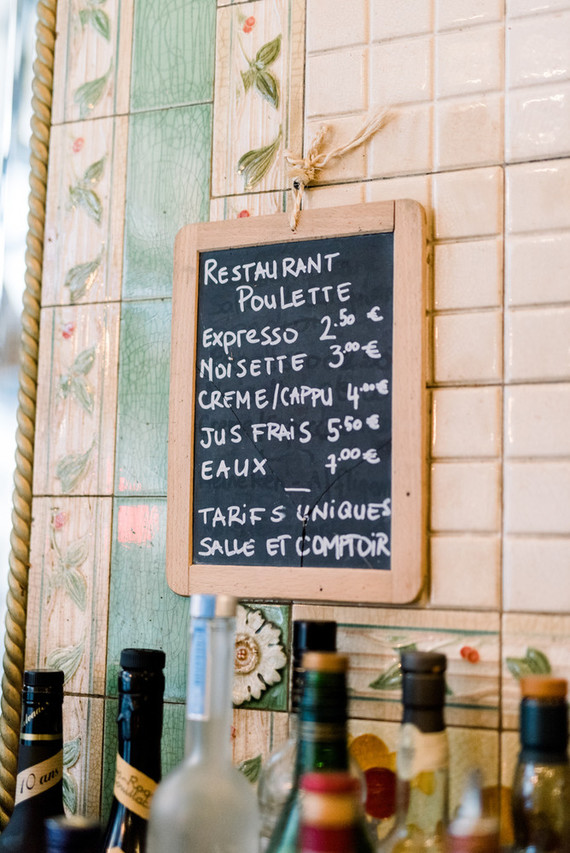 RESTAURANT
POULETTE
EXPRESSO 2.50 €
NOISETTE 3.00 €
CREME/CAPPU 4.00 €
JUS FRAIS 5.50 €
EAUX 7.00 €
TARIFS UNIQUES
SALLE ET COMPTOIR
10 ans